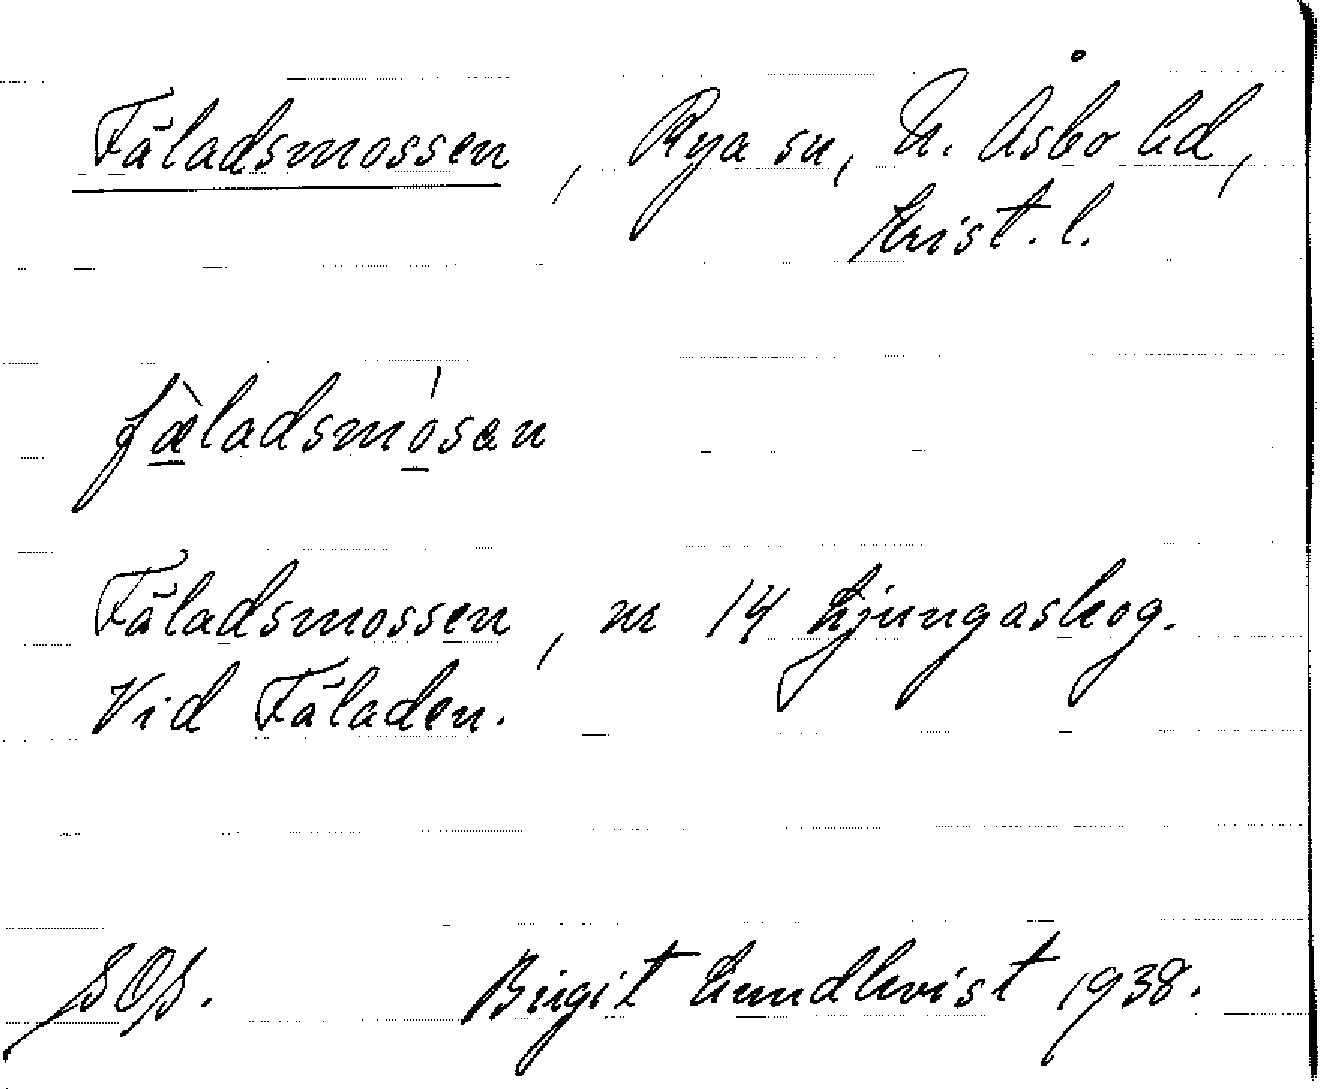 Fäladsmossen, Rya sn, N. Åsbo hd,
Krist. l.
fæ̀ladsmósen
Fäladsmossen, nr 14 Ljungaskog.
Vid Fäladen.
Birgit Lundkvist 1938.